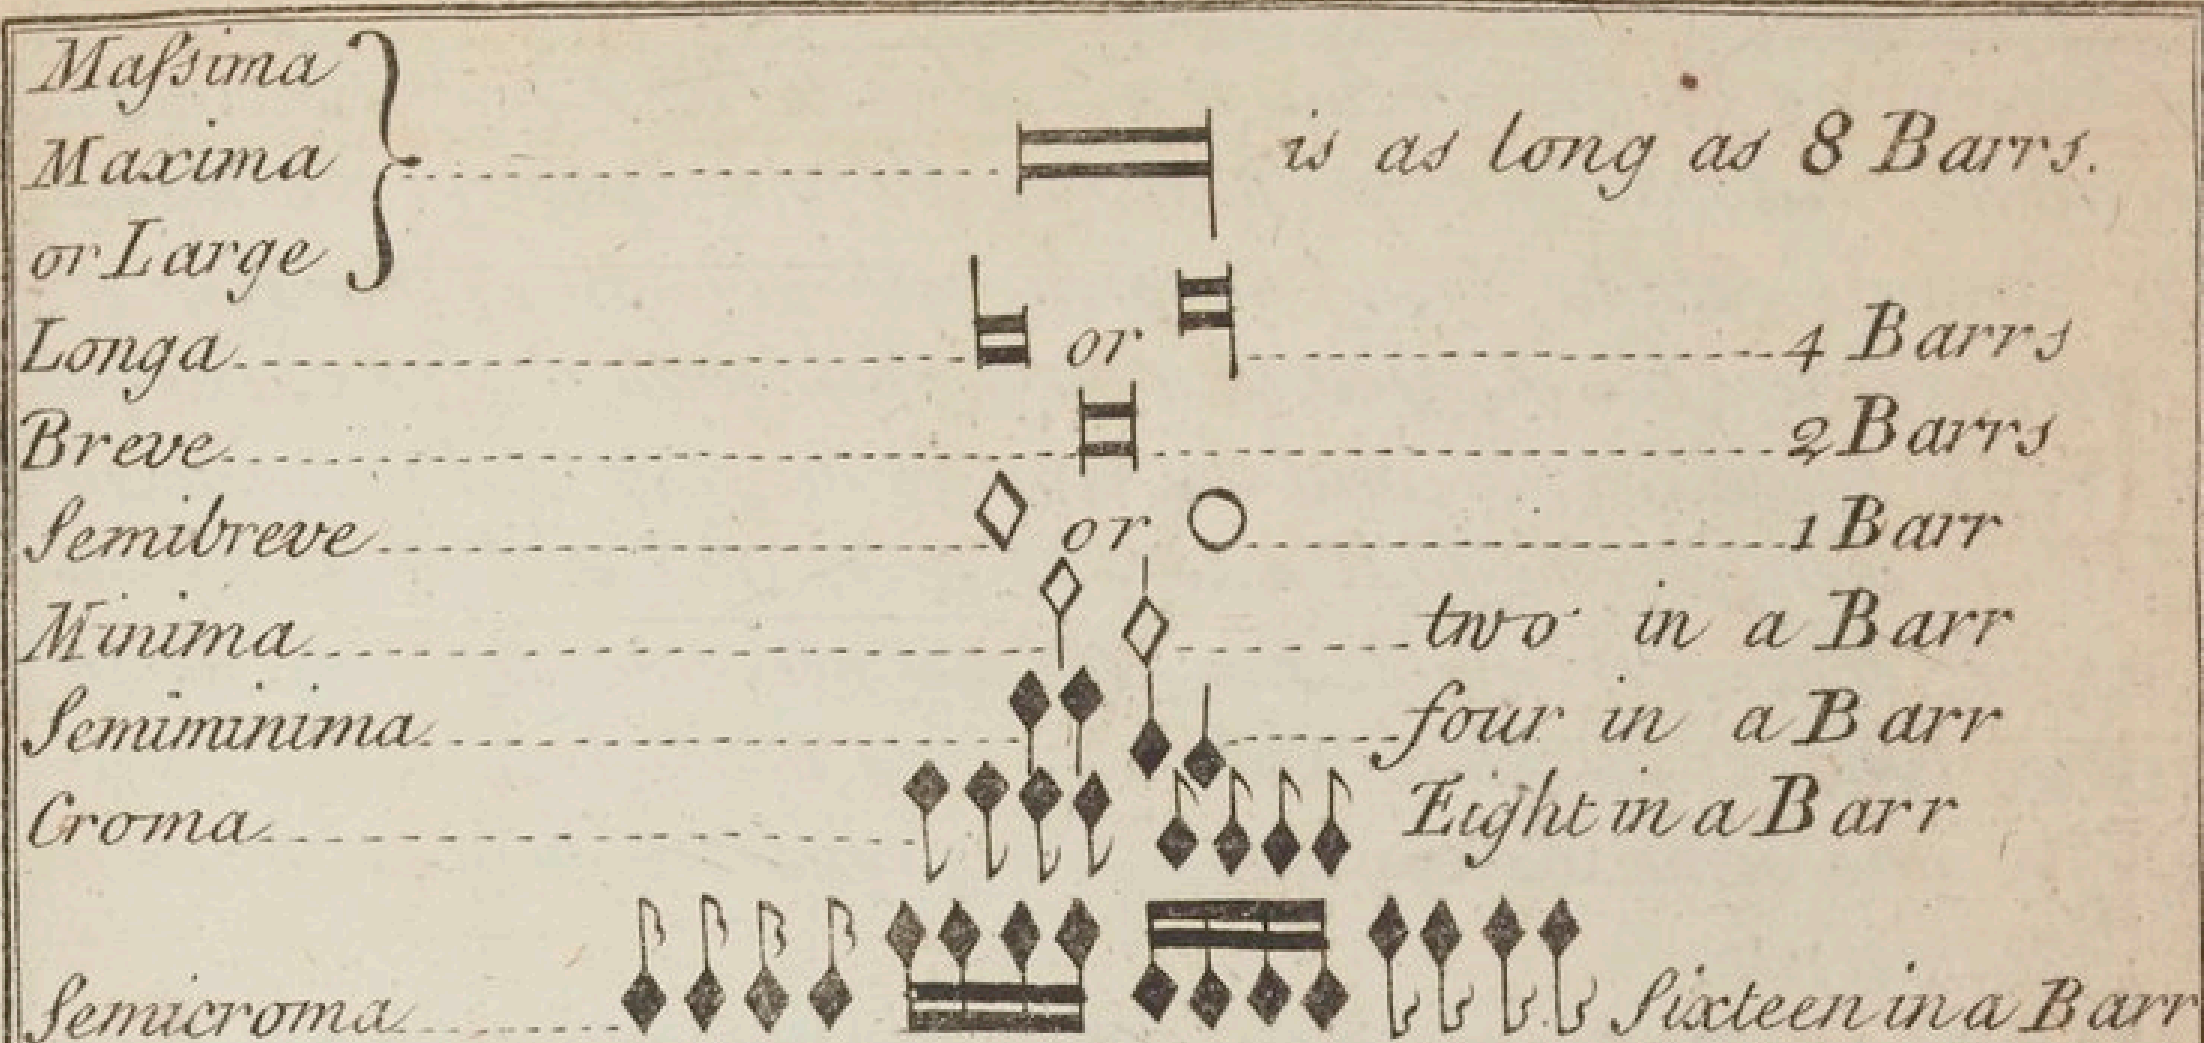 Maſsima
Maxima
or Large
is as long as 8 Barrs.
Longa or 4 Barrs
Breve 2 Barrs
Semibreve or 1 Barr
Minima two in a Barr
Semiminima four in a Barr
Croma Eight in a Barr
Semicroma Sixteen in a Barr